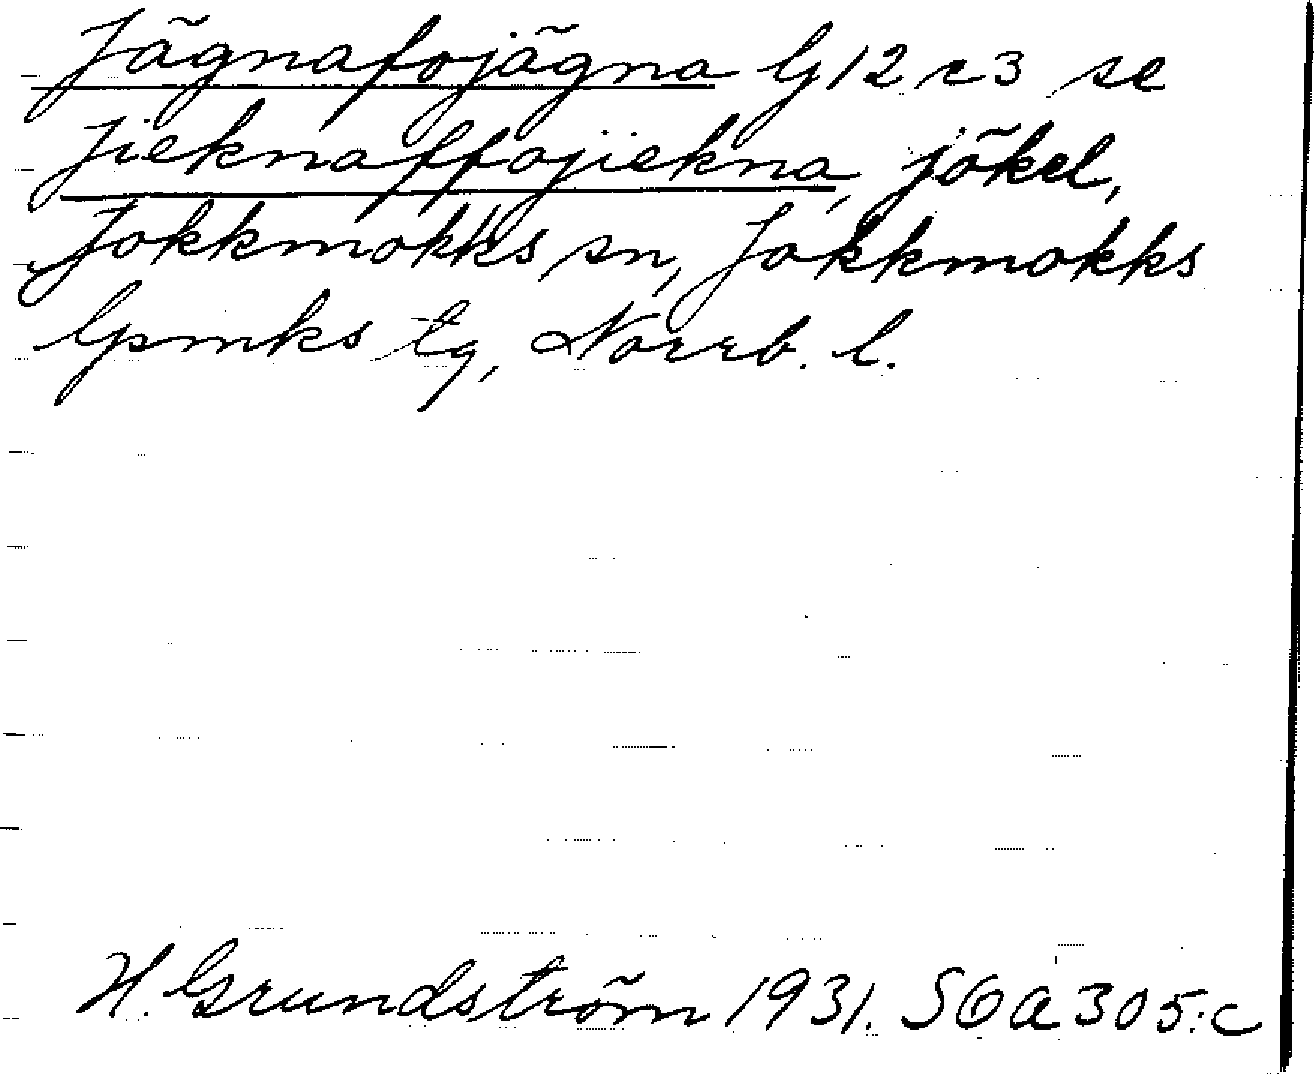 Jägnafojägna G 12 r 3 se
Jieknaffojiekna, jökel,
Jokkmokks sn, Jokkmokks
lpmks tg, Norrb. l.
H. Grundström 1931. SOA 305:c